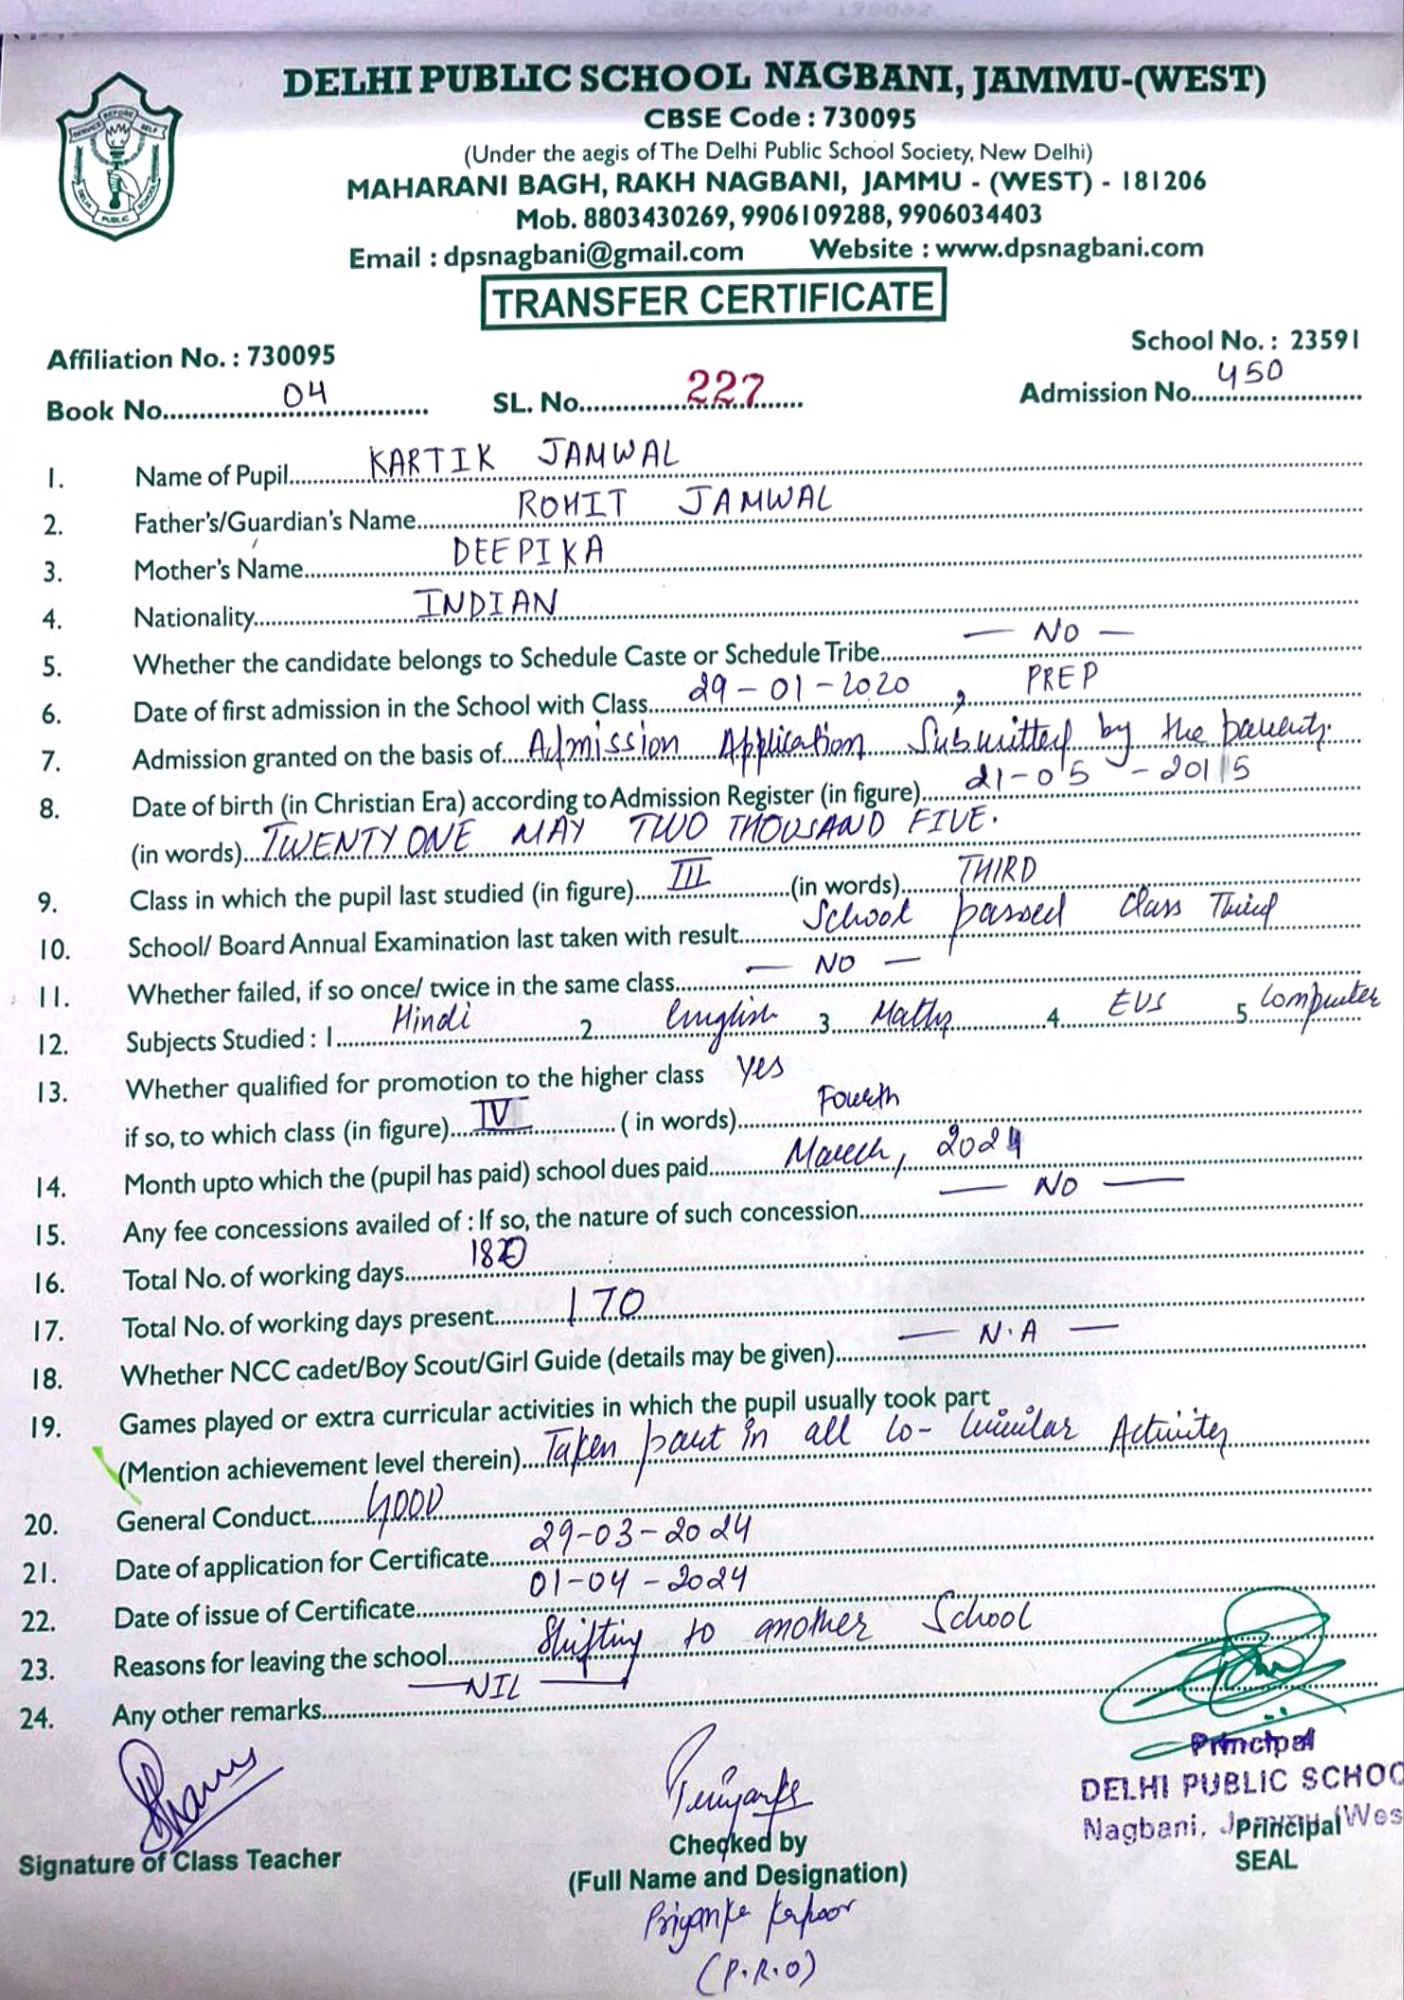 DELHI PUBLIC SCHOOL NAGBANI, JAMMU-(WEST)
CBSE Code : 730095
(Under the aegis of The Delhi Public School Society, New Delhi)
MAHARANI BAGH, RAKH NAGBANI, JAMMU - (WEST) - 181206
Mob. 8803430269, 9906109288, 9906034403
Email : dpsnagbani@gmail.com Website : www.dpsnagbani.com
SERVICE BEFORE SELF
DELHI PUBLIC SCHOOL
TRANSFER CERTIFICATE
Affiliation No. : 730095 School No. : 23591
Book No. 04 SL. No. 227 Admission No. 450
1. Name of Pupil KARTIK JAMWAL
2. Father's/Guardian's Name ROHIT JAMWAL
3. Mother's Name DEEPIKA
4. Nationality INDIAN
5. Whether the candidate belongs to Schedule Caste or Schedule Tribe — NO —
6. Date of first admission in the School with Class 29-01-2020, PREP
7. Admission granted on the basis of Admission Application Submitted by the parents.
8. Date of birth (in Christian Era) according to Admission Register (in figure) 21-05-2015
(in words) TWENTY ONE MAY TWO THOUSAND FIVE.
9. Class in which the pupil last studied (in figure) III (in words) THIRD
10. School/ Board Annual Examination last taken with result School passed Class Third
11. Whether failed, if so once/ twice in the same class — NO —
12. Subjects Studied : 1 Hindi 2 English 3 Maths 4 EVS 5 Computer
13. Whether qualified for promotion to the higher class Yes
if so, to which class (in figure) IV ( in words) Fourth
14. Month upto which the (pupil has paid) school dues paid March, 2024
15. Any fee concessions availed of : If so, the nature of such concession — NO —
16. Total No. of working days 180
17. Total No. of working days present 170
18. Whether NCC cadet/Boy Scout/Girl Guide (details may be given) — N.A —
19. Games played or extra curricular activities in which the pupil usually took part
(Mention achievement level therein) Taken part in all Co-Curricular Activities
20. General Conduct GOOD
21. Date of application for Certificate 29-03-2024
22. Date of issue of Certificate 01-04-2024
23. Reasons for leaving the school Shifting to another School
24. Any other remarks — NIL —
Sharma Priyanka Principal
DELHI PUBLIC SCHOO
Nagbani, (Wes
Signature of Class Teacher Checked by Principal
(Full Name and Designation) SEAL
Priyanka Kapoor
(P.R.O)